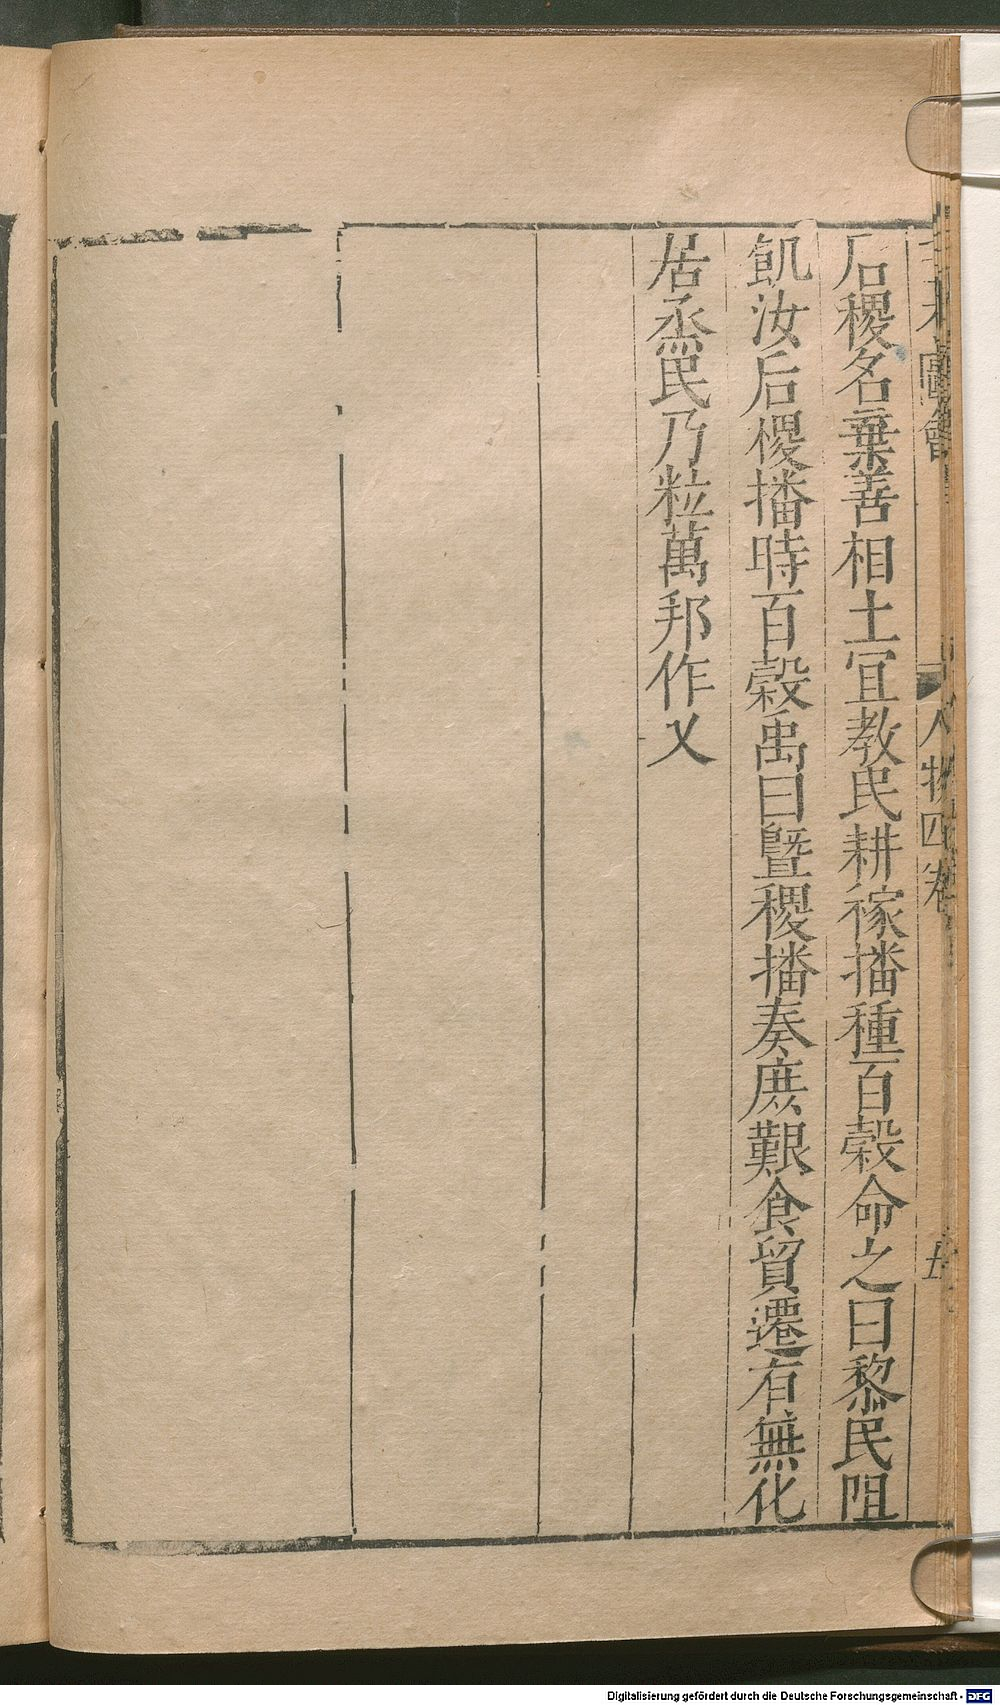 后稷名棄善相土宜教民耕稼播種百穀命之曰黎民阻
飢汝后稷播時百穀禹曰暨稷播奏庶艱食貿遷有無化
居烝民乃粒萬邦作乂
圖會
人物四卷
Digitalisierung gefördert durch die Deutsche Forschungsgemeinschaft - DFG